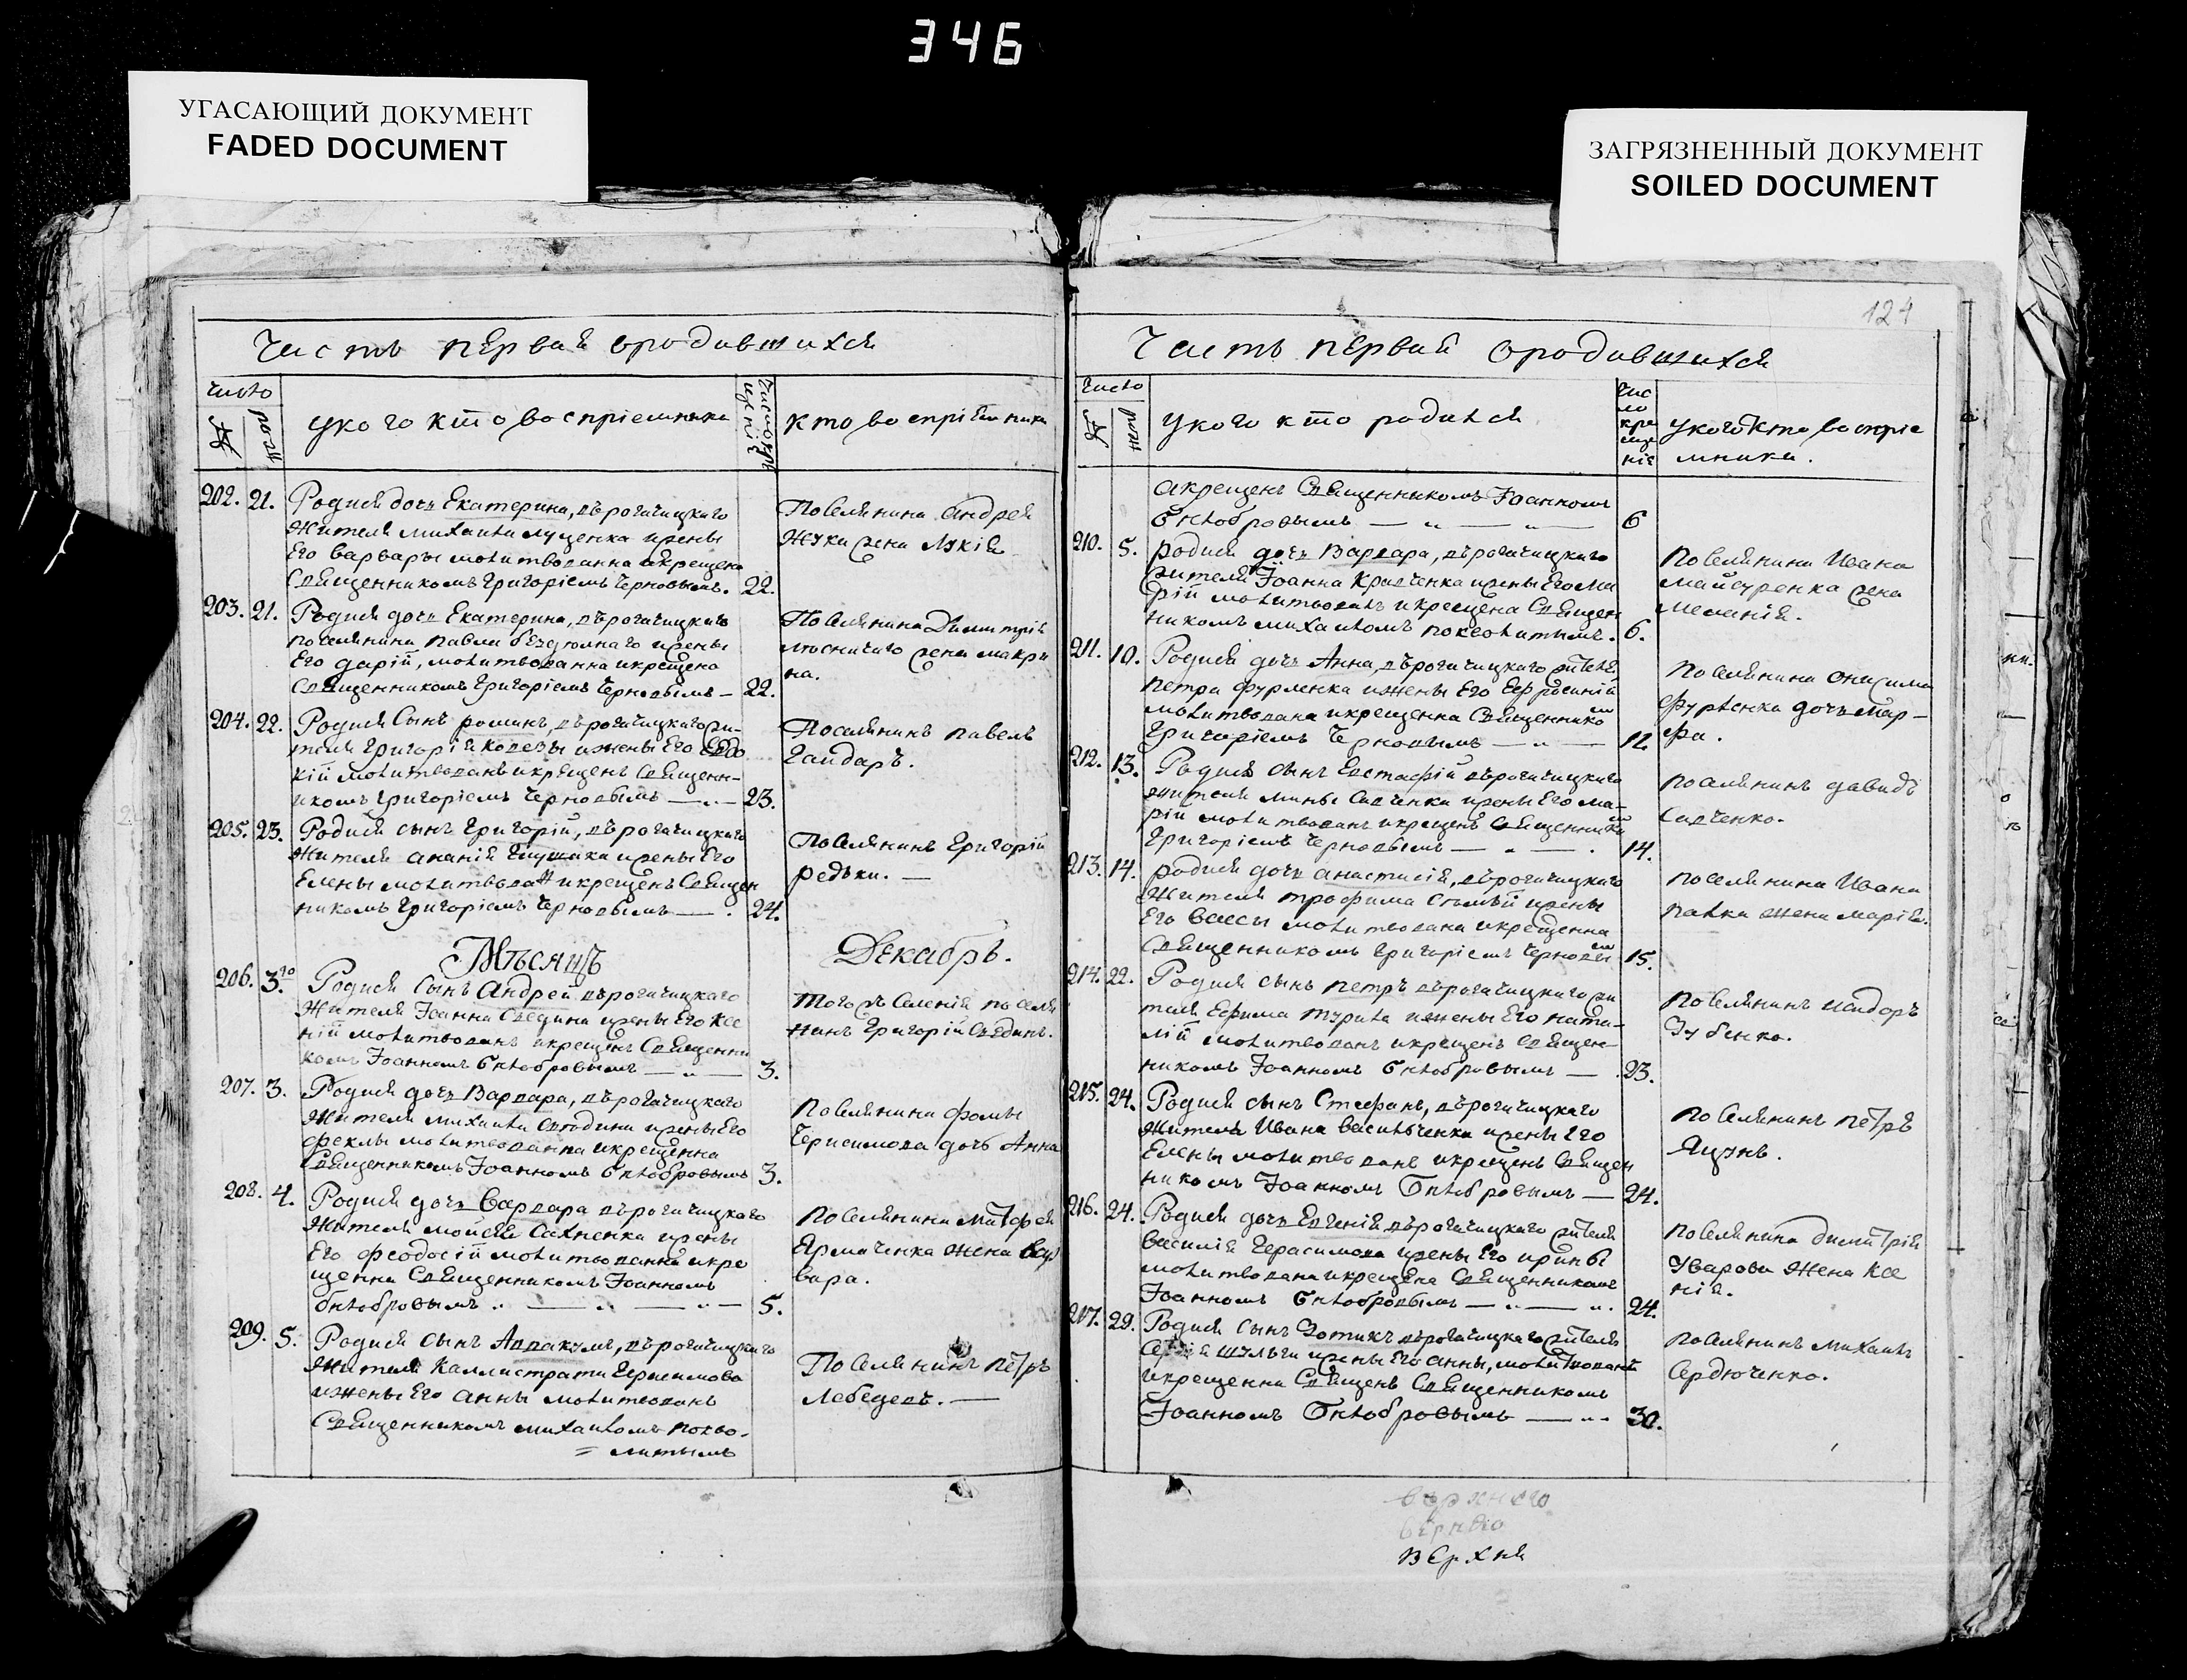 346
УГАСАЮЩИЙ ДОКУМЕНТ
FADED DOCUMENT
ЗАГРЯЗНЕННЫЙ ДОКУМЕНТ
SOILED DOCUMENT
Часть первая ородившихся
число
у кого кто воспріемника
кто воспріемники
202. 21. Родися дочь Екатерина, въ рогачицкаго
жителя михаила луценка ижены
Его варвары молитвованна икрещена
Священникомъ Григоріемъ Черновымъ. 22.
Поселянина Андрея
Жука жена Лукія
203. 21. Родися дочь Екатерина, въ рогачицкаго
поселянина павла ижены
Его дарій, молитвованна икрещена
Священникомъ Григоріемъ Черновымъ — 22.
Поселянина Димитрія
жена макри
на.
204. 22. Родися Сынъ романъ, въ рогачицкаго жи-
теля Григорія ижены Его Евдо
кій молитвованъ икрещенъ Священн-
икомъ Григоріемъ Черновымъ — „ — 23.
Поселянинъ павелъ
Гайдаръ.
205. 23. Родися сынъ Григорій, въ рогачицкаго
жителя ананія ижены Его
Елены молитвованъ икрещенъ Священ
никомъ Григоріемъ Черновымъ — . 24.
Поселянинъ Григорій
редька. —
Мѣсяцъ
Декабрь.
206. 3го. Родися Сынъ Андрей въ рогачицкаго
жителя Іоанна ижены Его Ксе
ній молитвованъ икрещенъ Священни
комъ Іоанномъ Бѣлобровымъ — „ — 3.
Того въ Селенія поселя
нинъ Григорій
207. 3. Родися дочь Варвара, въ рогачицкаго
жителя михаила ижены Его
феклы молитвованна икрещенна
Священникомъ Іоанномъ Бѣлобровымъ 3.
поселянина фомы
дочь Анна
208. 4. Родися дочь Варвара въ рогачицкаго
жителя мойсея Сахненка ижены
Его феодосій молитвованна икре
щенна Священникомъ Іоанномъ
Бѣлобровымъ „ — „ — „ — 5.
поселянина митфея
Ярмаченка жена вар
вара.
209. 5. Родися сынъ Аввакумъ, въ рогачицкаго
жителя Каллистрата Герасимова
ижены Его анны молитвованъ
Священникомъ михаиломъ похво-
= литымъ
Поселянинъ петръ
Лебедевъ. —
124
Часть первая ородившихся
число
у кого кто родился
чис
ло
кре
ще
ніе
у кого кто воспріе
мники.
икрещенъ Священникомъ Іоанномъ
Бѣлобровымъ — „ — „ — 6
210. 5. родися дочь Варвара, въ рогачицкаго
жителя Іоанна Кравченка ижены Его Ма
рій молитвованъ икрещена Священ
никомъ михаиломъ похволитымъ. 6.
поселянина Ивана
майсуренка жена
меланія.
211. 10. Родися дочь Анна, въ рогачицкаго жителя
петра ижены Его Ефросиній
молитвована икрещенна Священнико
Григоріемъ Черновымъ — „ — 12
поселянина онисима
дочь мар-
фа.
212. 13. Родися сынъ Евстафій въ рогачицкаго
жителя мины Савченка ижены Его ма-
рій молитвованъ икрещенъ Священнико
Григоріемъ Черновымъ — „ — . 14.
поселянинъ давидъ
Савченко.
213. 14. родися дочь анастасія, въ рогачицкаго
жителя трофима ижены
Его Вассы молитвована икрещенна
Священникомъ Григоріемъ Черновы 15.
поселянина Ивана
палка жена марія.
214. 22. Родися сынъ петръ въ рогачицкаго жи
теля Ефима ижены Его ната-
лій молитвованъ икрещенъ Священ-
никомъ Іоанномъ Бѣлобровымъ — 23.
поселянинъ исидоръ
Зубенко.
215. 24. Родися сынъ Стефанъ, въ рогачицкаго
жителя Ивана Васильченка ижены Его
Елены молитвованъ икрещенъ Священ
никомъ Іоанномъ Бѣлобровымъ — 24.
поселянинъ петръ
Яцунъ.
216. 24. Родися дочь Евгенія въ рогачицкаго жителя
василія Герасимова ижены Его ирины
молитвована икрещена Священникомъ
Іоанномъ Бѣлобровымъ — „ — „. 24.
поселянина димитрія
Уварова жена Ксе
нія.
217. 29. Родися Сынъ Зотикъ въ рогачицкаго жителя
Шульги ижены Его анны, молитвованъ
икрещенна Священъ Священникомъ
Іоанномъ Бѣлобровымъ — „ — 30.
поселянинъ михаилъ
Сердюченко.
верхняго
верхня